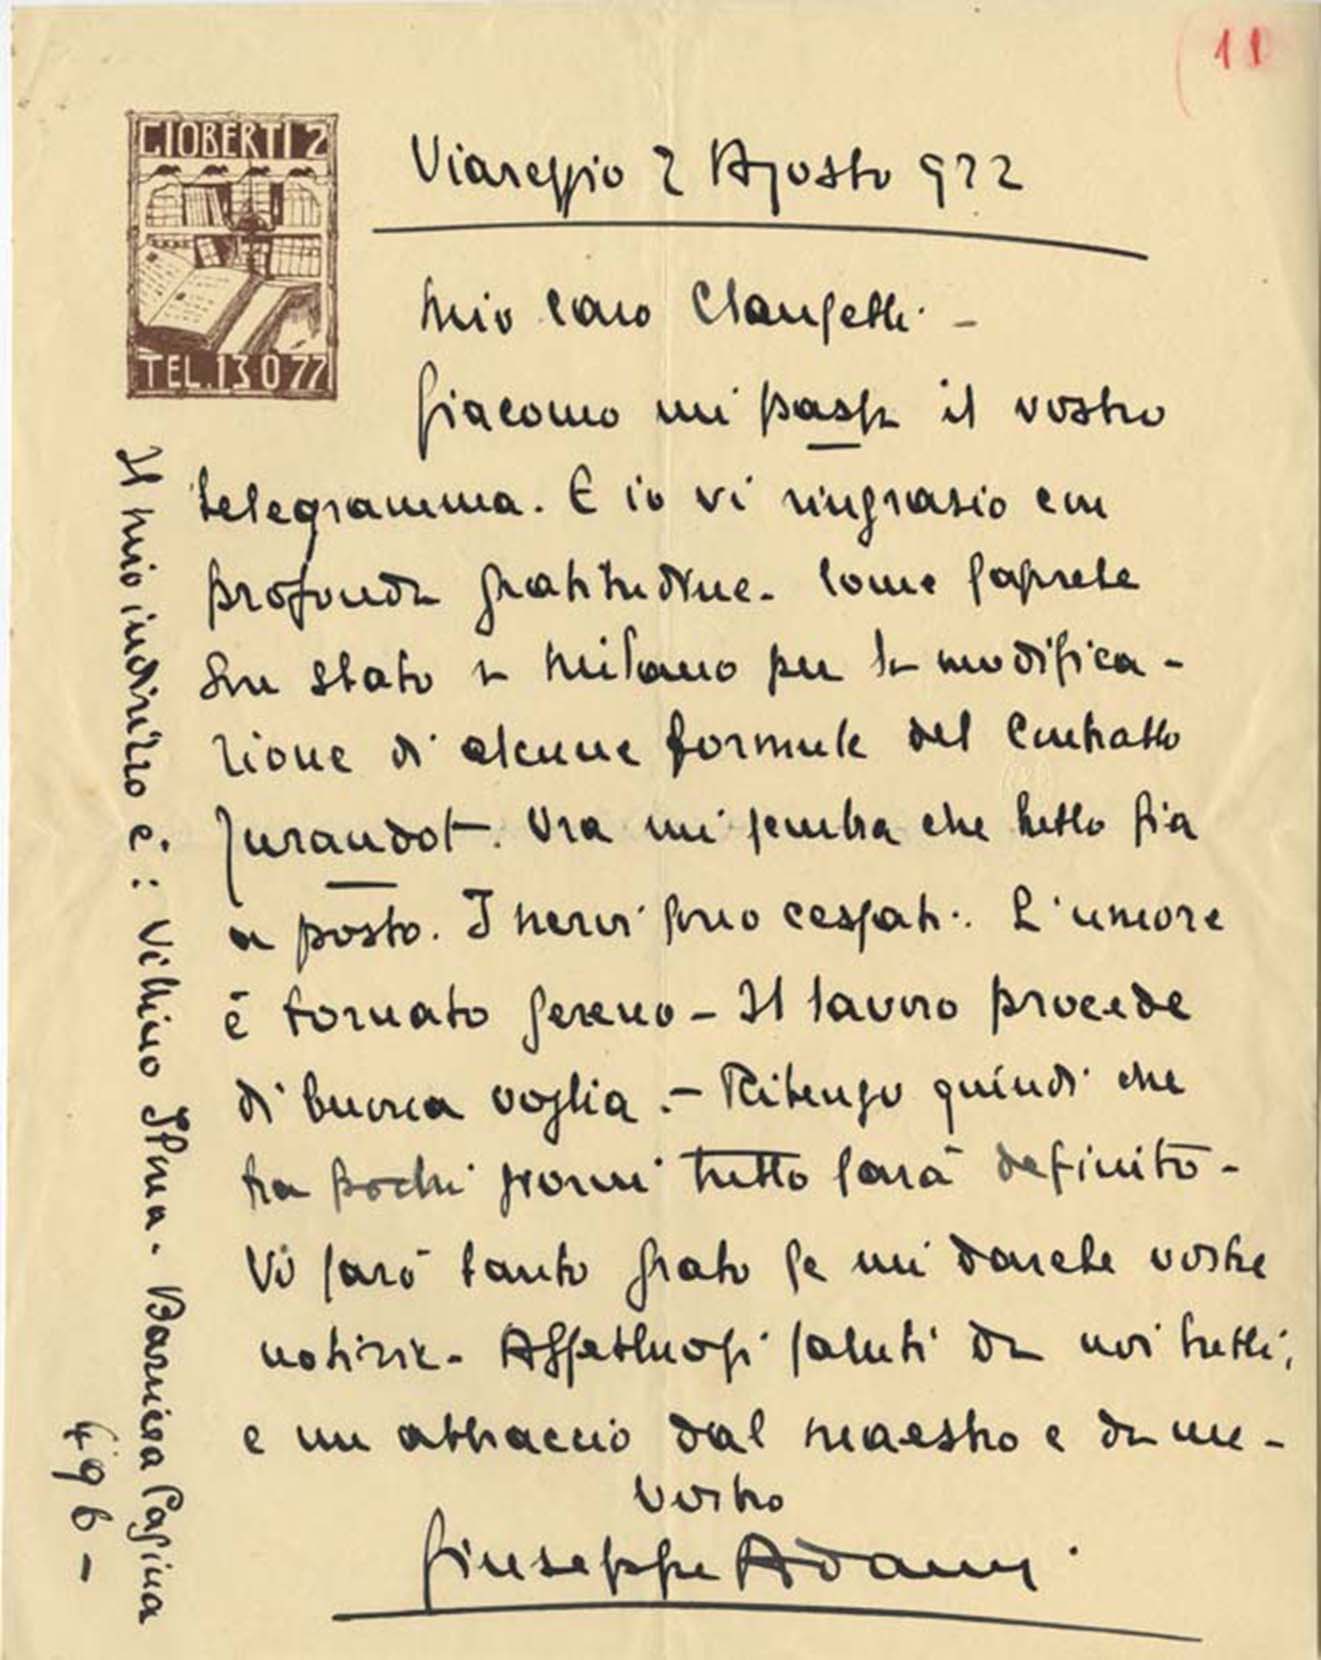 11
GIOBERTI 2
TEL. 13-077
Viareggio 2 Agosto 922
Mio caro Clausetti. -
Giacomo mi passa il vostro
telegramma. E io vi ringrazio con
profonda gratitudine. Come saprete
son stato a Milano per la modifica-
zione di alcune formule del contratto
Turandot. Ora mi sembra che tutto sia
a posto. I nervi sono cessati. L'umore
è tornato sereno - Il lavoro procede
di buona voglia. - Ritengo quindi che
tra pochi giorni tutto sarà definito -
Vi sarò tanto grato se mi darete vostre
notizie. Affettuosi saluti da noi tutti,
e un abbraccio dal maestro e da me -
Vostro
Giuseppe Adami
Il mio indirizzo è: Villino - Barriera Casina
496 -